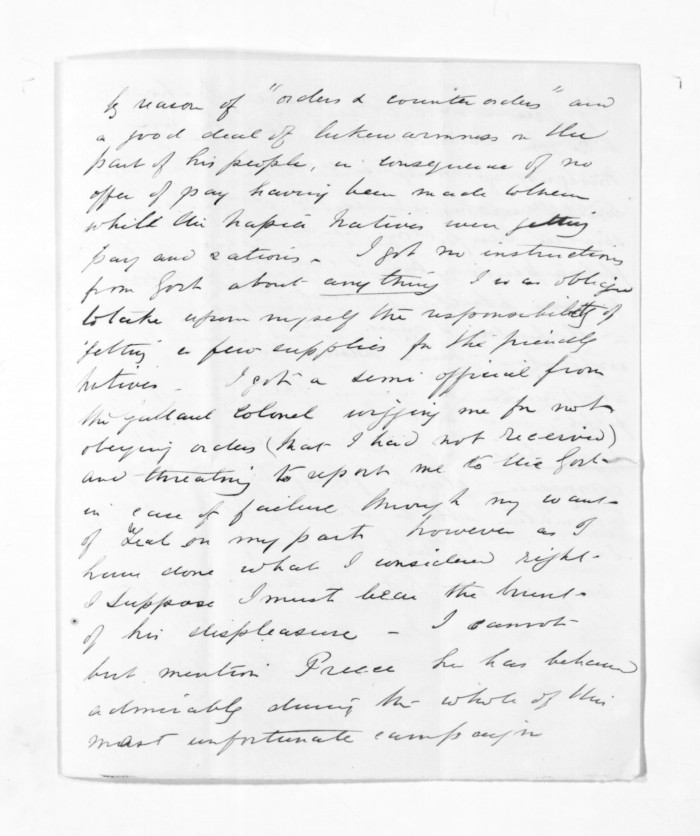 by reason of "orders & counter orders" and
a good deal of lukewarmness on the
part of his people, in consequence of no
offer of pay having been made to them
whilst the Napier Natives were getting
pay and rations - I got no instructions
from Govt about anything I was obliged
to take upon myself the responsibility of
getting a few supplies for the friendly
natives - I got a semi official from
the gallant Colonel wigging me for not
obeying orders (that I had not received)
and threating to report me to the Govt
in case of failure through my want
of Zeal on my part, however as I
have done what I considered right
I suppose I must bear the brunt
of his displeasure - I cannot
but mention Preece he has behaved
admirably during the whole of this
most unfortunate campaign